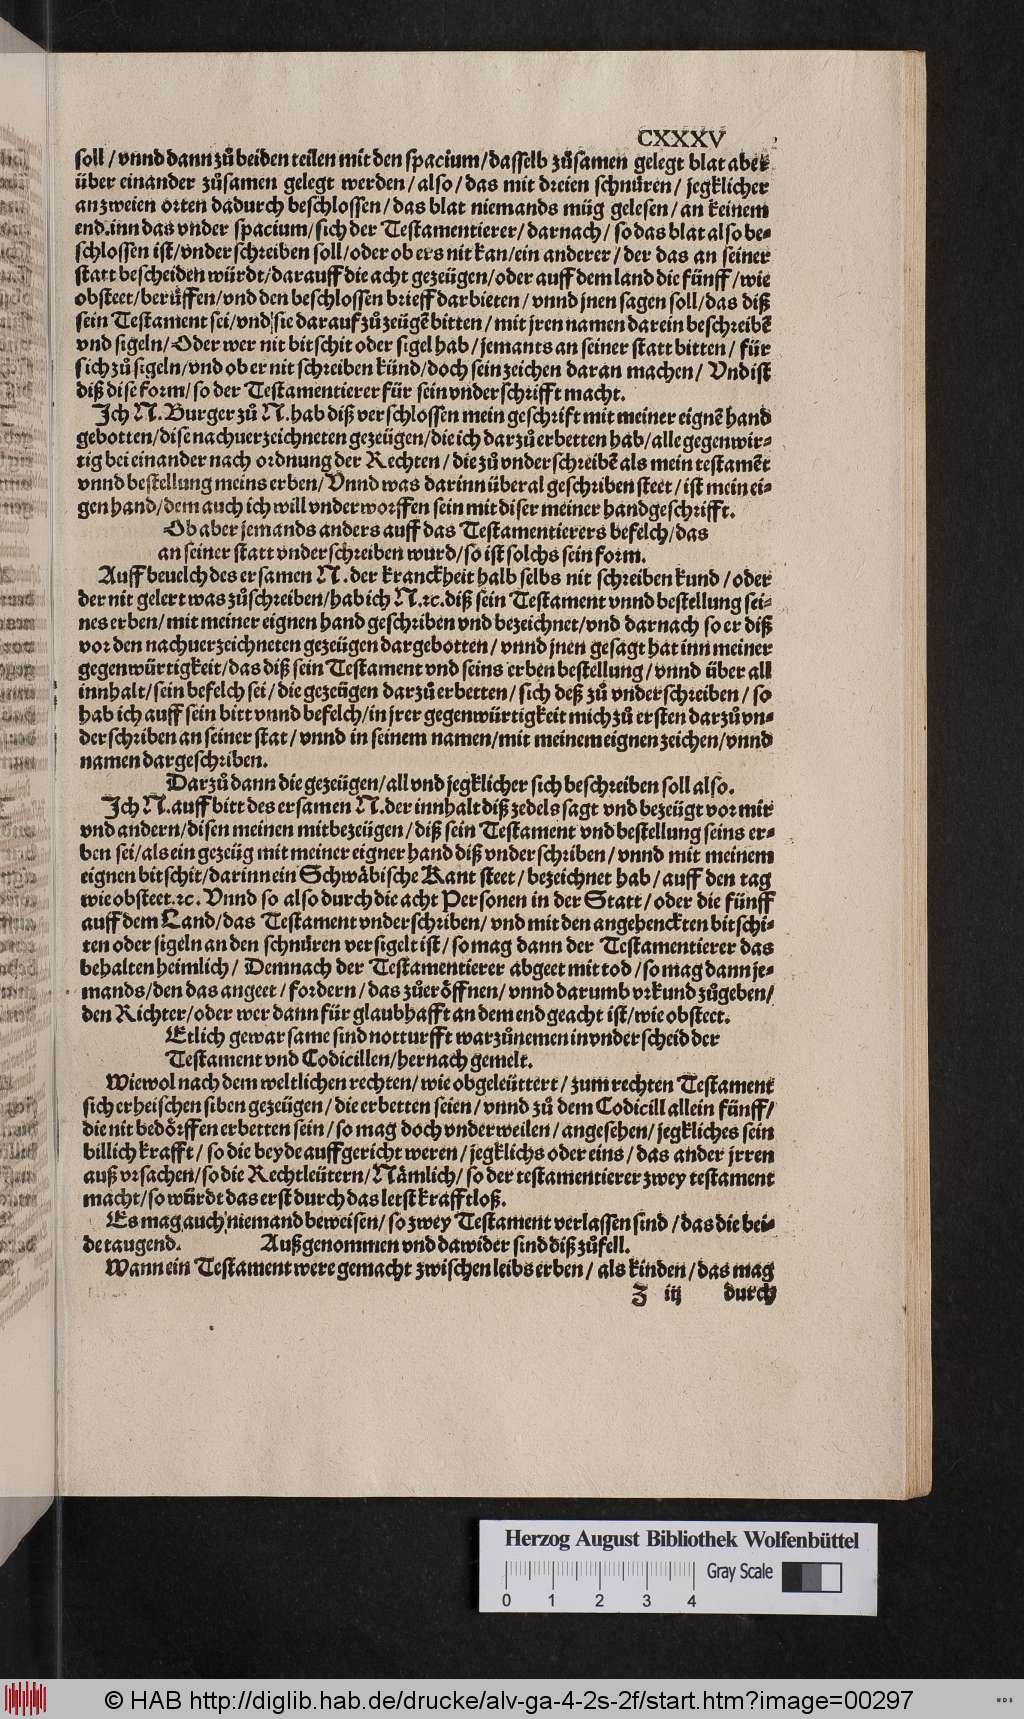 CXXXV
soll / vnnd dann zů beiden teilen mit den spacium / dasselb zůsamen gelegt blat aber
über einander zůsamen gelegt werden / also / das mit dreien schnüren / jegklicher
an zweien orten dadurch beschlossen / das blat niemands müg gelesen / an keinem
end. inn das vnder spacium / sich der Testamentierer / darnach / so das blat also be⸗
schlossen ist / vnderschreiben soll / oder ob ers nit kan / ein anderer / der das an seiner
statt bescheiden würdt / darauff die acht gezeügen / oder auff dem land die fünff / wie
obsteet / berüffen / vnd den beschlossen brieff darbieten / vnnd jnen sagen soll / das diß
sein Testament sei / vnd sie darauf zů zeügē bitten / mit jren namen darein beschreibē
vnd sigeln / Oder wer nit bitschit oder sigel hab / jemants an seiner statt bitten / für
sich zů sigeln / vnd ob er nit schreiben künd / doch sein zeichen daran machen / Vnd ist
diß dise form / so der Testamentierer für sein vnderschrifft macht.
Ich N. Burger zů N. hab diß verschlossen mein geschrift mit meiner eignē hand
gebotten / dise nachuerzeichneten gezeügen / die ich darzů erbetten hab / alle gegenwir⸗
tig bei einander nach ordnung der Rechten / die zů vnderschreibē als mein testamēt
vnnd bestellung meins erben / Vnnd was darinn überal geschriben steet / ist mein ei⸗
gen hand / dem auch ich will vnderworffen sein mit diser meiner handgeschrifft.
Ob aber jemands anders auff das Testamentierers befelch / das
an seiner statt vnderschreiben wurd / so ist solchs sein form.
Auff beuelch des ersamen N. der kranckheit halb selbs nit schreiben kund / oder
der nit gelert was zůschreiben / hab ich N. ꝛc. diß sein Testament vnnd bestellung sei⸗
nes erben / mit meiner eignen hand geschriben vnd bezeichnet / vnd darnach so er diß
vor den nachuerzeichneten gezeügen dargebotten / vnnd jnen gesagt hat inn meiner
gegenwürtigkeit / das diß sein Testament vnd seins erben bestellung / vnnd über all
innhalt / sein befelch sei / die gezeügen darzů erbetten / sich deß zů vnderschreiben / so
hab ich auff sein bitt vnnd befelch / in jrer gegenwürtigkeit mich zů ersten darzů vn⸗
derschriben an seiner stat / vnnd in seinem namen / mit meinem eignen zeichen / vnnd
namen dargeschriben.
Darzů dann die gezeügen / all vnd jegklicher sich beschreiben soll also.
Ich N. auff bitt des ersamen N. der innhalt diß zedels sagt vnd bezeügt vor mir
vnd andern / disen meinen mitbezeügen / diß sein Testament vnd bestellung seins er⸗
ben sei / als ein gezeüg mit meiner eigner hand diß vnderschriben / vnnd mit meinem
eignen bitschit / darinn ein Schwäbische Kant steet / bezeichnet hab / auff den tag
wie obsteet. ꝛc. Vnnd so also durch die acht Personen in der Statt / oder die fünff
auff dem Land / das Testament vnderschriben / vnd mit den angehenckten bitschi⸗
ten oder sigeln an den schnüren versigelt ist / so mag dann der Testamentierer das
behalten heimlich / Demnach der Testamentierer abgeet mit tod / so mag dann je⸗
mands / den das angeet / fordern / das zů eröffnen / vnnd darumb vrkund zůgeben /
den Richter / oder wer dann für glaubhafft an dem end geacht ist / wie obsteet.
Etlich gewarsame sind notturfft warzůnemen in vnderscheid der
Testament vnd Codicillen / hernach gemelt.
Wiewol nach dem weltlichen rechten / wie obgeleüttert / zum rechten Testament
sich erheischen siben gezeügen / die erbetten seien / vnnd zů dem Codicill allein fünff /
die nit bedörffen erbetten sein / so mag doch vnderweilen / angesehen / jegkliches sein
billich krafft / so die beyde auffgericht weren / jegklichs oder eins / das ander jrren
auß vrsachen / so die Rechtleütern / Nämlich / so der testamentierer zwey testament
macht / so würdt das erst durch das letst krafftloß.
Es mag auch niemand beweisen / so zwey Testament verlassen sind / das die bei⸗
de taugend. Außgenommen vnd dawider sind diß zůfell.
Wann ein Testament were gemacht zwischen leibs erben / als kinden / das mag
Z iij durch
Herzog August Bibliothek Wolfenbüttel
Gray Scale
0 1 2 3 4
© HAB http://diglib.hab.de/drucke/alv-ga-4-2s-2f/start.htm?image=00297